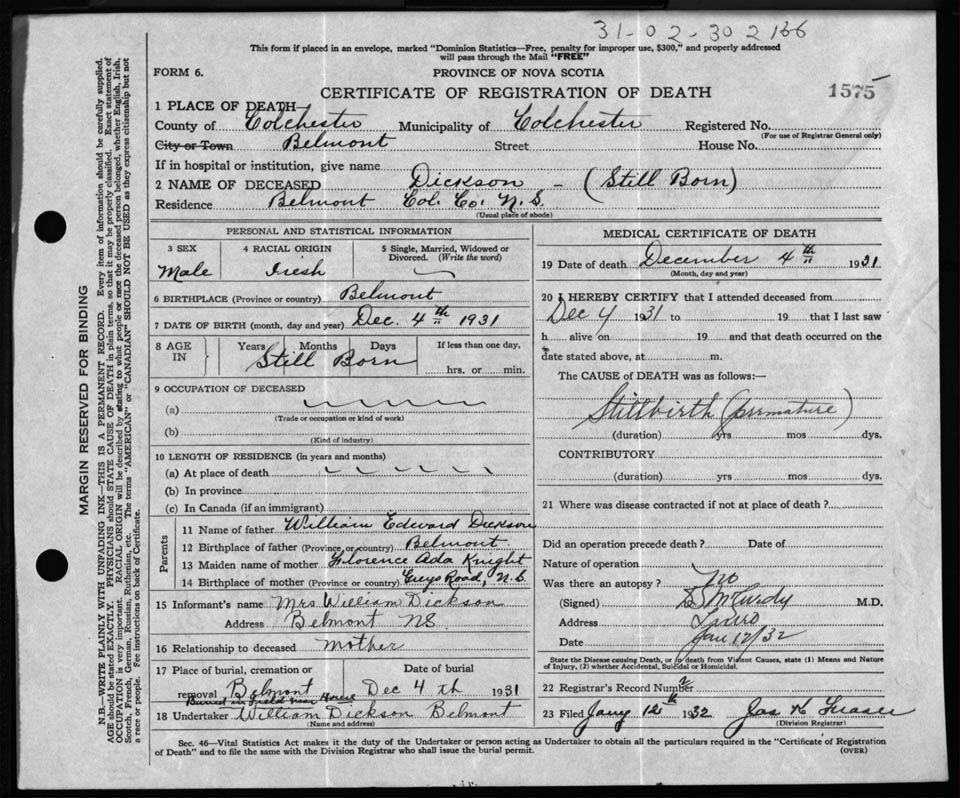 31-02-302166
This form if placed in an envelope, marked "Dominion Statistics—Free, penalty for improper use, $300," and properly addressed
will pass through the Mail "FREE"
FORM 6.
PROVINCE OF NOVA SCOTIA
CERTIFICATE OF REGISTRATION OF DEATH
1575
1 PLACE OF DEATH
County of Colchester Municipality of Colchester Registered No.
(For use of Registrar General only)
City or Town Belmont Street House No.
If in hospital or institution, give name
2 NAME OF DECEASED Dickson - (Still Born)
Residence Belmont Col. Co. N.S.
(Usual place of abode)
PERSONAL AND STATISTICAL INFORMATION
3 SEX 4 RACIAL ORIGIN 5 Single, Married, Widowed or
Divorced. (Write the word)
Male Irish
6 BIRTHPLACE (Province or country) Belmont
7 DATE OF BIRTH (month, day and year) Dec. 4th 1931
8 AGE IN Years Months Days If less than one day,
Still Born hrs. or min.
9 OCCUPATION OF DECEASED
(a)
(Trade or occupation or kind of work)
(b)
(Kind of industry)
10 LENGTH OF RESIDENCE (in years and months)
(a) At place of death
(b) In province
(c) In Canada (if an immigrant)
Parents
11 Name of father William Edward Dickson
12 Birthplace of father (Province or country) Belmont
13 Maiden name of mother Florence Ada Knight
14 Birthplace of mother (Province or country) Greys Road, N.S.
15 Informant's name Mrs William Dickson
Address Belmont NS
16 Relationship to deceased mother
17 Place of burial, cremation or Date of burial
removal Belmont Dec 4th 1931
Buried in field near House
18 Undertaker William Dickson Belmont
(Name and address)
MEDICAL CERTIFICATE OF DEATH
19 Date of death December 4th 1931
(Month, day and year)
20 I HEREBY CERTIFY that I attended deceased from
Dec 4 1931 to 19 that I last saw
h alive on 19 and that death occurred on the
date stated above, at m.
The CAUSE of DEATH was as follows:—
Stillbirth (premature)
(duration) yrs mos dys.
CONTRIBUTORY
(duration) yrs mos dys.
21 Where was disease contracted if not at place of death?
Did an operation precede death? Date of
Nature of operation
Was there an autopsy? No
(Signed) McCurdy M.D.
Address Truro
Date Jan 12/32
State the Disease causing Death, or in death from Violent Causes, state (1) Means and Nature
of Injury, (2) whether Accidental, Suicidal or Homicidal.
22 Registrar's Record Number 2
23 Filed Jany 12th 1932 Jas N Fraser
(Division Registrar)
Sec. 46—Vital Statistics Act makes it the duty of the Undertaker or person acting as Undertaker to obtain all the particulars required in the "Certificate of Registration
of Death" and to file the same with the Division Registrar who shall issue the burial permit. (OVER)
MARGIN RESERVED FOR BINDING
N.B.—WRITE PLAINLY WITH UNFADING INK—THIS IS A PERMANENT RECORD. Every item of information should be carefully supplied.
AGE should be stated EXACTLY. PHYSICIANS should STATE CAUSE OF DEATH in plain terms, so that it may be properly classified. Exact statement of
OCCUPATION is very important. RACIAL ORIGIN will be described by stating to what people or race the deceased person belonged, whether English, Irish,
Scotch, French, German, Russian, Ruthenian, etc. The terms "AMERICAN" or "CANADIAN" SHOULD NOT BE USED as they express citizenship but not
a race or people. Fee instructions on back of Certificate.